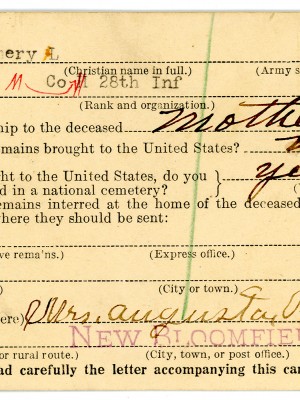 nery L
(Christian name in full.) (Army s
M Co M 28th Inf
(Rank and organization.)
ship to the deceased mothe
emains brought to the United States?
ght to the United States, do you } ye
d in a national cemetery? }
emains interred at the home of the deceased
where they should be sent:
ive rema'ns.) (Express office.)
(City or town.)
ere) Mrs. Augusta
NEW BLOOMFIE
r or rural route.) (City, town, or post office.)
ad carefully the letter accompanying this car